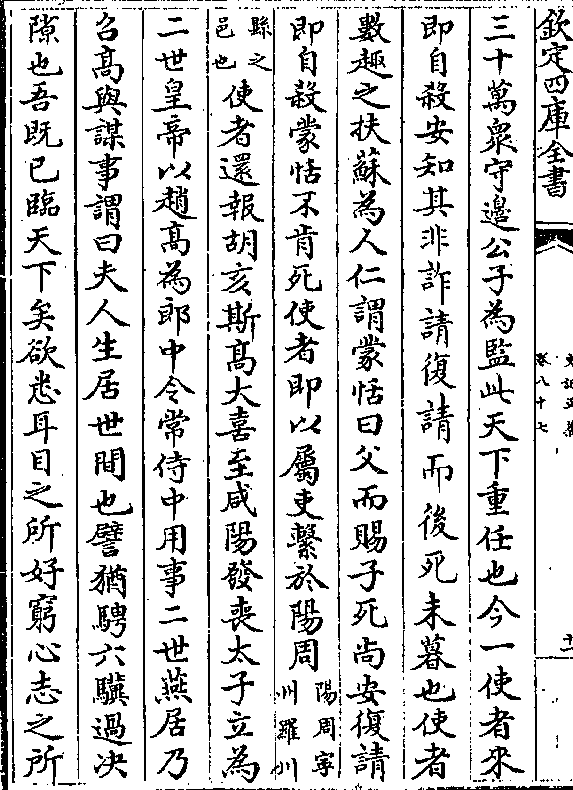 欽定四庫全書
史記正義
卷八十七
十一
三十萬衆守邊公子為監此天下重任也今一使者來
即自殺安知其非詐請復請而後死未暮也使者
數趣之扶蘇為人仁謂蒙恬曰父而賜子死尚安復請
即自殺蒙恬不肯死使者即以屬吏繫於陽周
陽周寧
州羅川
縣之
邑也
使者還報胡亥斯高大喜至咸陽發喪太子立為
二世皇帝以趙高為郎中令常侍中用事二世燕居乃
召高與謀事謂曰夫人生居世間也譬猶騁六驥過决
隙也吾既已臨天下矣欲悉耳目之所好窮心志之所